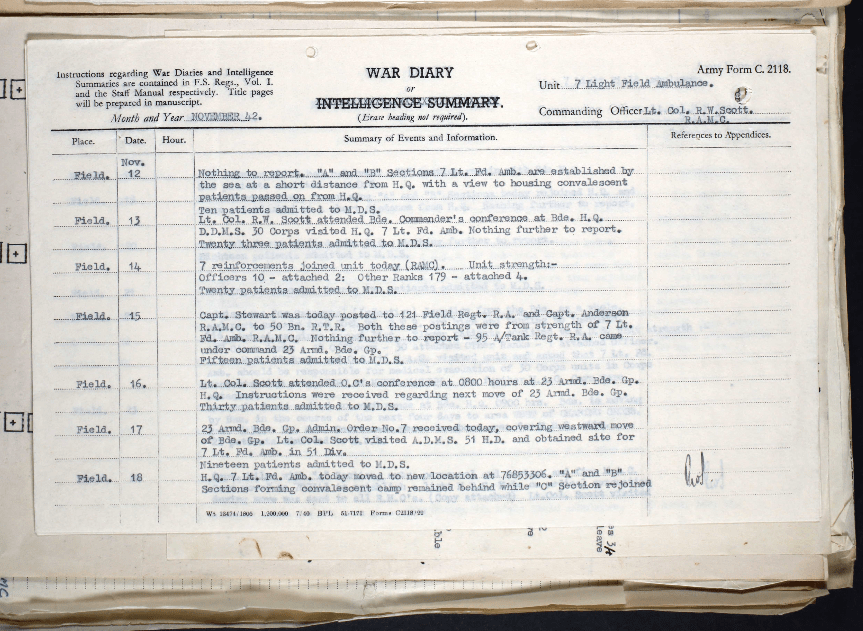 Instructions regarding War Diaries and Intelligence
Summaries are contained in F.S. Regs., Vol. I.
and the Staff Manual respectively. Title pages
will be prepared in manuscript.
Month and Year NOVEMBER 42.
WAR DIARY
or
INTELLIGENCE SUMMARY.
(Erase heading not required).
Army Form C. 2118.
Unit 7 Light Field Ambulance.
Commanding Officer Lt. Col. R.W.Scott.
R.A.M.C.
Place. Date. Hour. Summary of Events and Information. References to Appendices.
Nov.
Field. 12 Nothing to report. "A" and "B" Sections 7 Lt. Fd. Amb. are established by
the sea at a short distance from H.Q. with a view to housing convalescent
patients passed on from H.Q.
Ten patients admitted to M.D.S.
Field. 13 Lt. Col. R.W. Scott attended Bde. Commander's conference at Bde. H.Q.
D.D.M.S. 30 Corps visited H.Q. 7 Lt. Fd. Amb. Nothing further to report.
Twenty three patients admitted to M.D.S.
Field. 14 7 reinforcements joined unit today (RAMC). Unit strength:-
Officers 10 - attached 2; Other Ranks 179 - attached 4.
Twenty patients admitted to M.D.S.
Field. 15 Capt. Stewart was today posted to 121 Field Regt. R.A. and Capt. Anderson
R.A.M.C. to 50 Bn. R.T.R. Both these postings were from strength of 7 Lt.
Fd. Amb. R.A.M.C. Nothing further to report - 95 A/Tank Regt. R.A. came
under command 23 Armd. Bde. Gp.
Fifteen patients admitted to M.D.S.
Field. 16. Lt. Col. Scott attended O.C's conference at 0800 hours at 23 Armd. Bde. Gp.
H.Q. Instructions were received regarding next move of 23 Armd. Bde. Gp.
Thirty patients admitted to M.D.S.
Field. 17 23 Armd. Bde. Gp. Admin. Order No.7 received today, covering westward move
of Bde. Gp. Lt. Col. Scott visited A.D.M.S. 51 H.D. and obtained site for
7 Lt. Fd. Amb. in 51 Div.
Nineteen patients admitted to M.D.S.
Field. 18 H.Q. 7 Lt. Fd. Amb. today moved to new location at 76853306. "A" and "B"
Sections forming convalescent camp remained behind while "C" Section rejoined
1,200,000 7/40 BPL 51/7171 Forms C2118/22
ble
re
leave